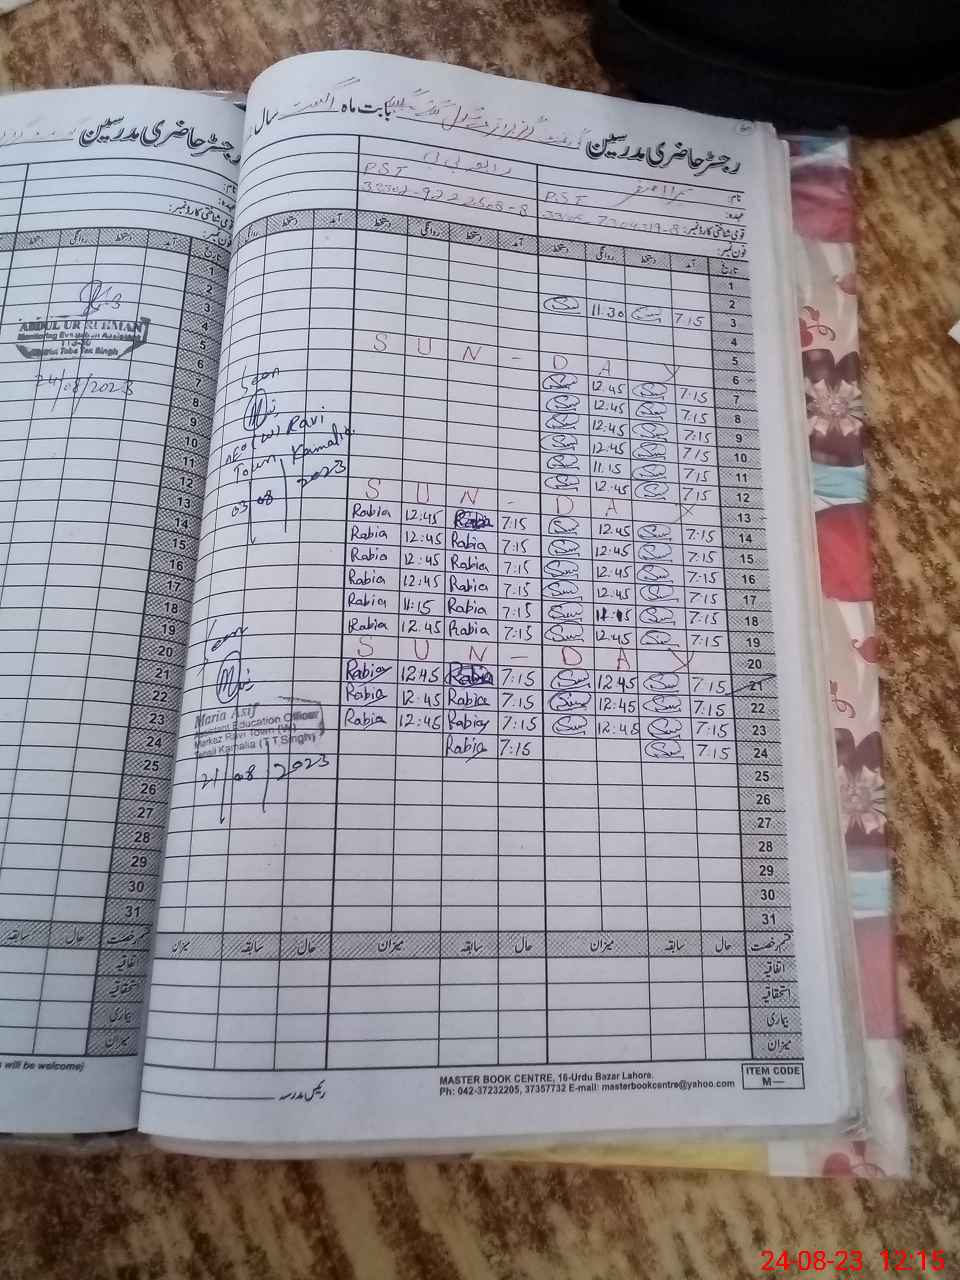 رجسٹر حاضری مدرسین
بابت ماہ اگست سال
رجسٹر حاضری مدرسین
نام:
عہدہ: PST PST
قومی شناختی کارڈ نمبر:
فون نمبر:
تاریخ آمد دستخط روانگی دستخط آمد دستخط روانگی دستخط آمد روانگی
1
2
3 7:15 11:30
4
5
S U N - D A Y
6
7 7:15 12:45
8 7:15 12:45
9 7:15 12:45
10 7:15 12:45
11 7:15 11:15
12 7:15 12:45
S U N - D A Y
13
14 7:15 12:45 7:15 Rabia 12:45 Rabia
15 7:15 12:45 7:15 Rabia 12:45 Rabia
16 7:15 12:45 7:15 Rabia 12:45 Rabia
17 7:15 12:45 7:15 Rabia 12:45 Rabia
18 7:15 11:15 7:15 Rabia 11:15 Rabia
19 7:15 12:45 7:15 Rabia 12:45 Rabia
S U N - D A Y
20
21 7:15 12:45 7:15 Rabia 12:45 Rabia
22 7:15 12:45 7:15 Rabia 12:45 Rabia
23 7:15 12:45 7:15 Rabia 12:45 Rabia
24 7:15 7:15 Rabia
25
26
27
28
29
30
31
قسم رخصت حال سابقہ میزان حال سابقہ میزان حال سابقہ میزان
اتفاقیہ
استحقاقیہ
بیماری
میزان
رئیس مدرسہ
Seen
AEO (W) Ravi
Town Kamalia.
03/08/2023
Seen
Maria Asif
Assistent Education Officer
Markaz Ravi Town (W)
Tehsil Kamalia (T.T.Singh)
21/08/2023
ABDUL UR REHMAN
Monitoring Evaluation Assistant
District Toba Tek Singh
24/08/2023
تاریخ آمد دستخط روانگی دستخط
1
2
3
4
5
6
7
8
9
10
11
12
13
14
15
16
17
18
19
20
21
22
23
24
25
26
27
28
29
30
31
قسم رخصت حال سابقہ
اتفاقیہ
استحقاقیہ
بیماری
میزان
will be welcome)
MASTER BOOK CENTRE, 16-Urdu Bazar Lahore.
Ph: 042-37232205, 37357732 E-mail: masterbookcentre@yahoo.com
ITEM CODE
M—
24-08-23 12:15